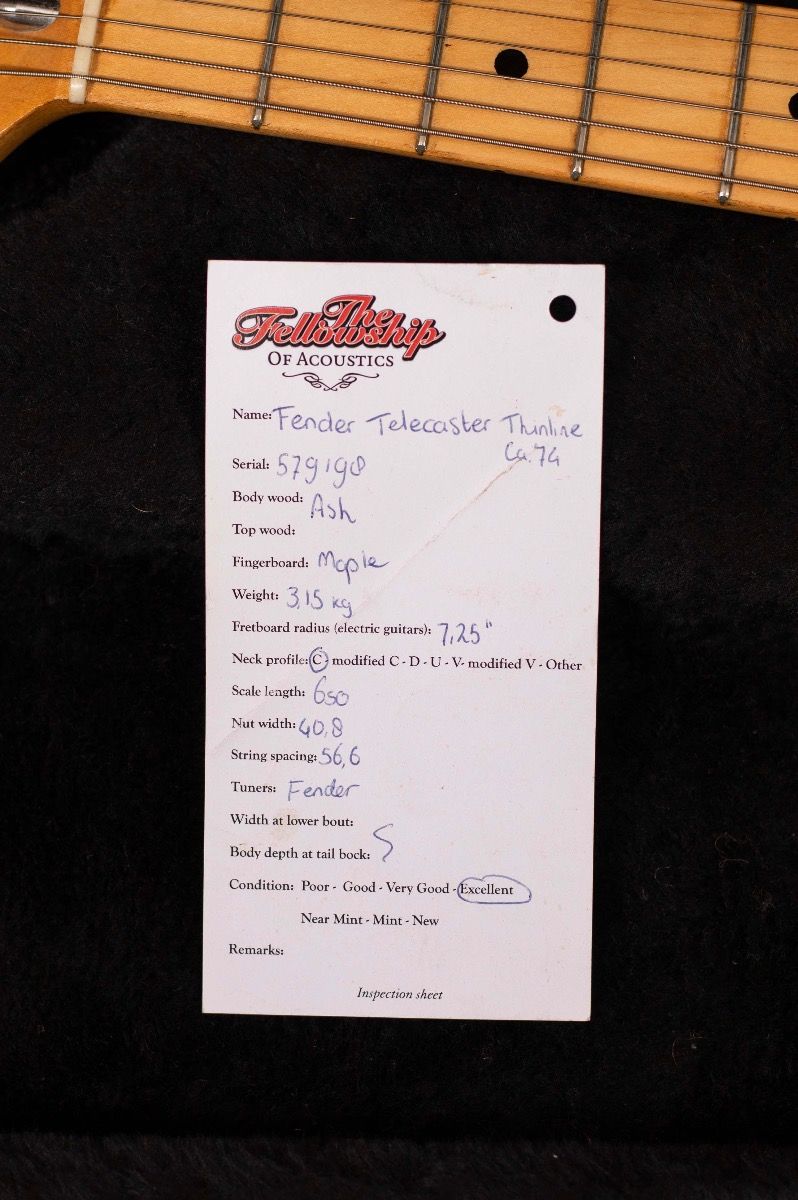 The
Fellowship
OF ACOUSTICS
Name: Fender Telecaster Thinline
Ca. 74
Serial: 579198
Body wood: Ash
Top wood:
Fingerboard: Maple
Weight: 3,15 kg
Fretboard radius (electric guitars): 7,25"
Neck profile: C - modified C - D - U - V- modified V - Other
Scale length: 650
Nut width: 40,8
String spacing: 56,6
Tuners: Fender
Width at lower bout:
Body depth at tail bock:
Condition: Poor - Good - Very Good - Excellent
Near Mint - Mint - New
Remarks:
Inspection sheet